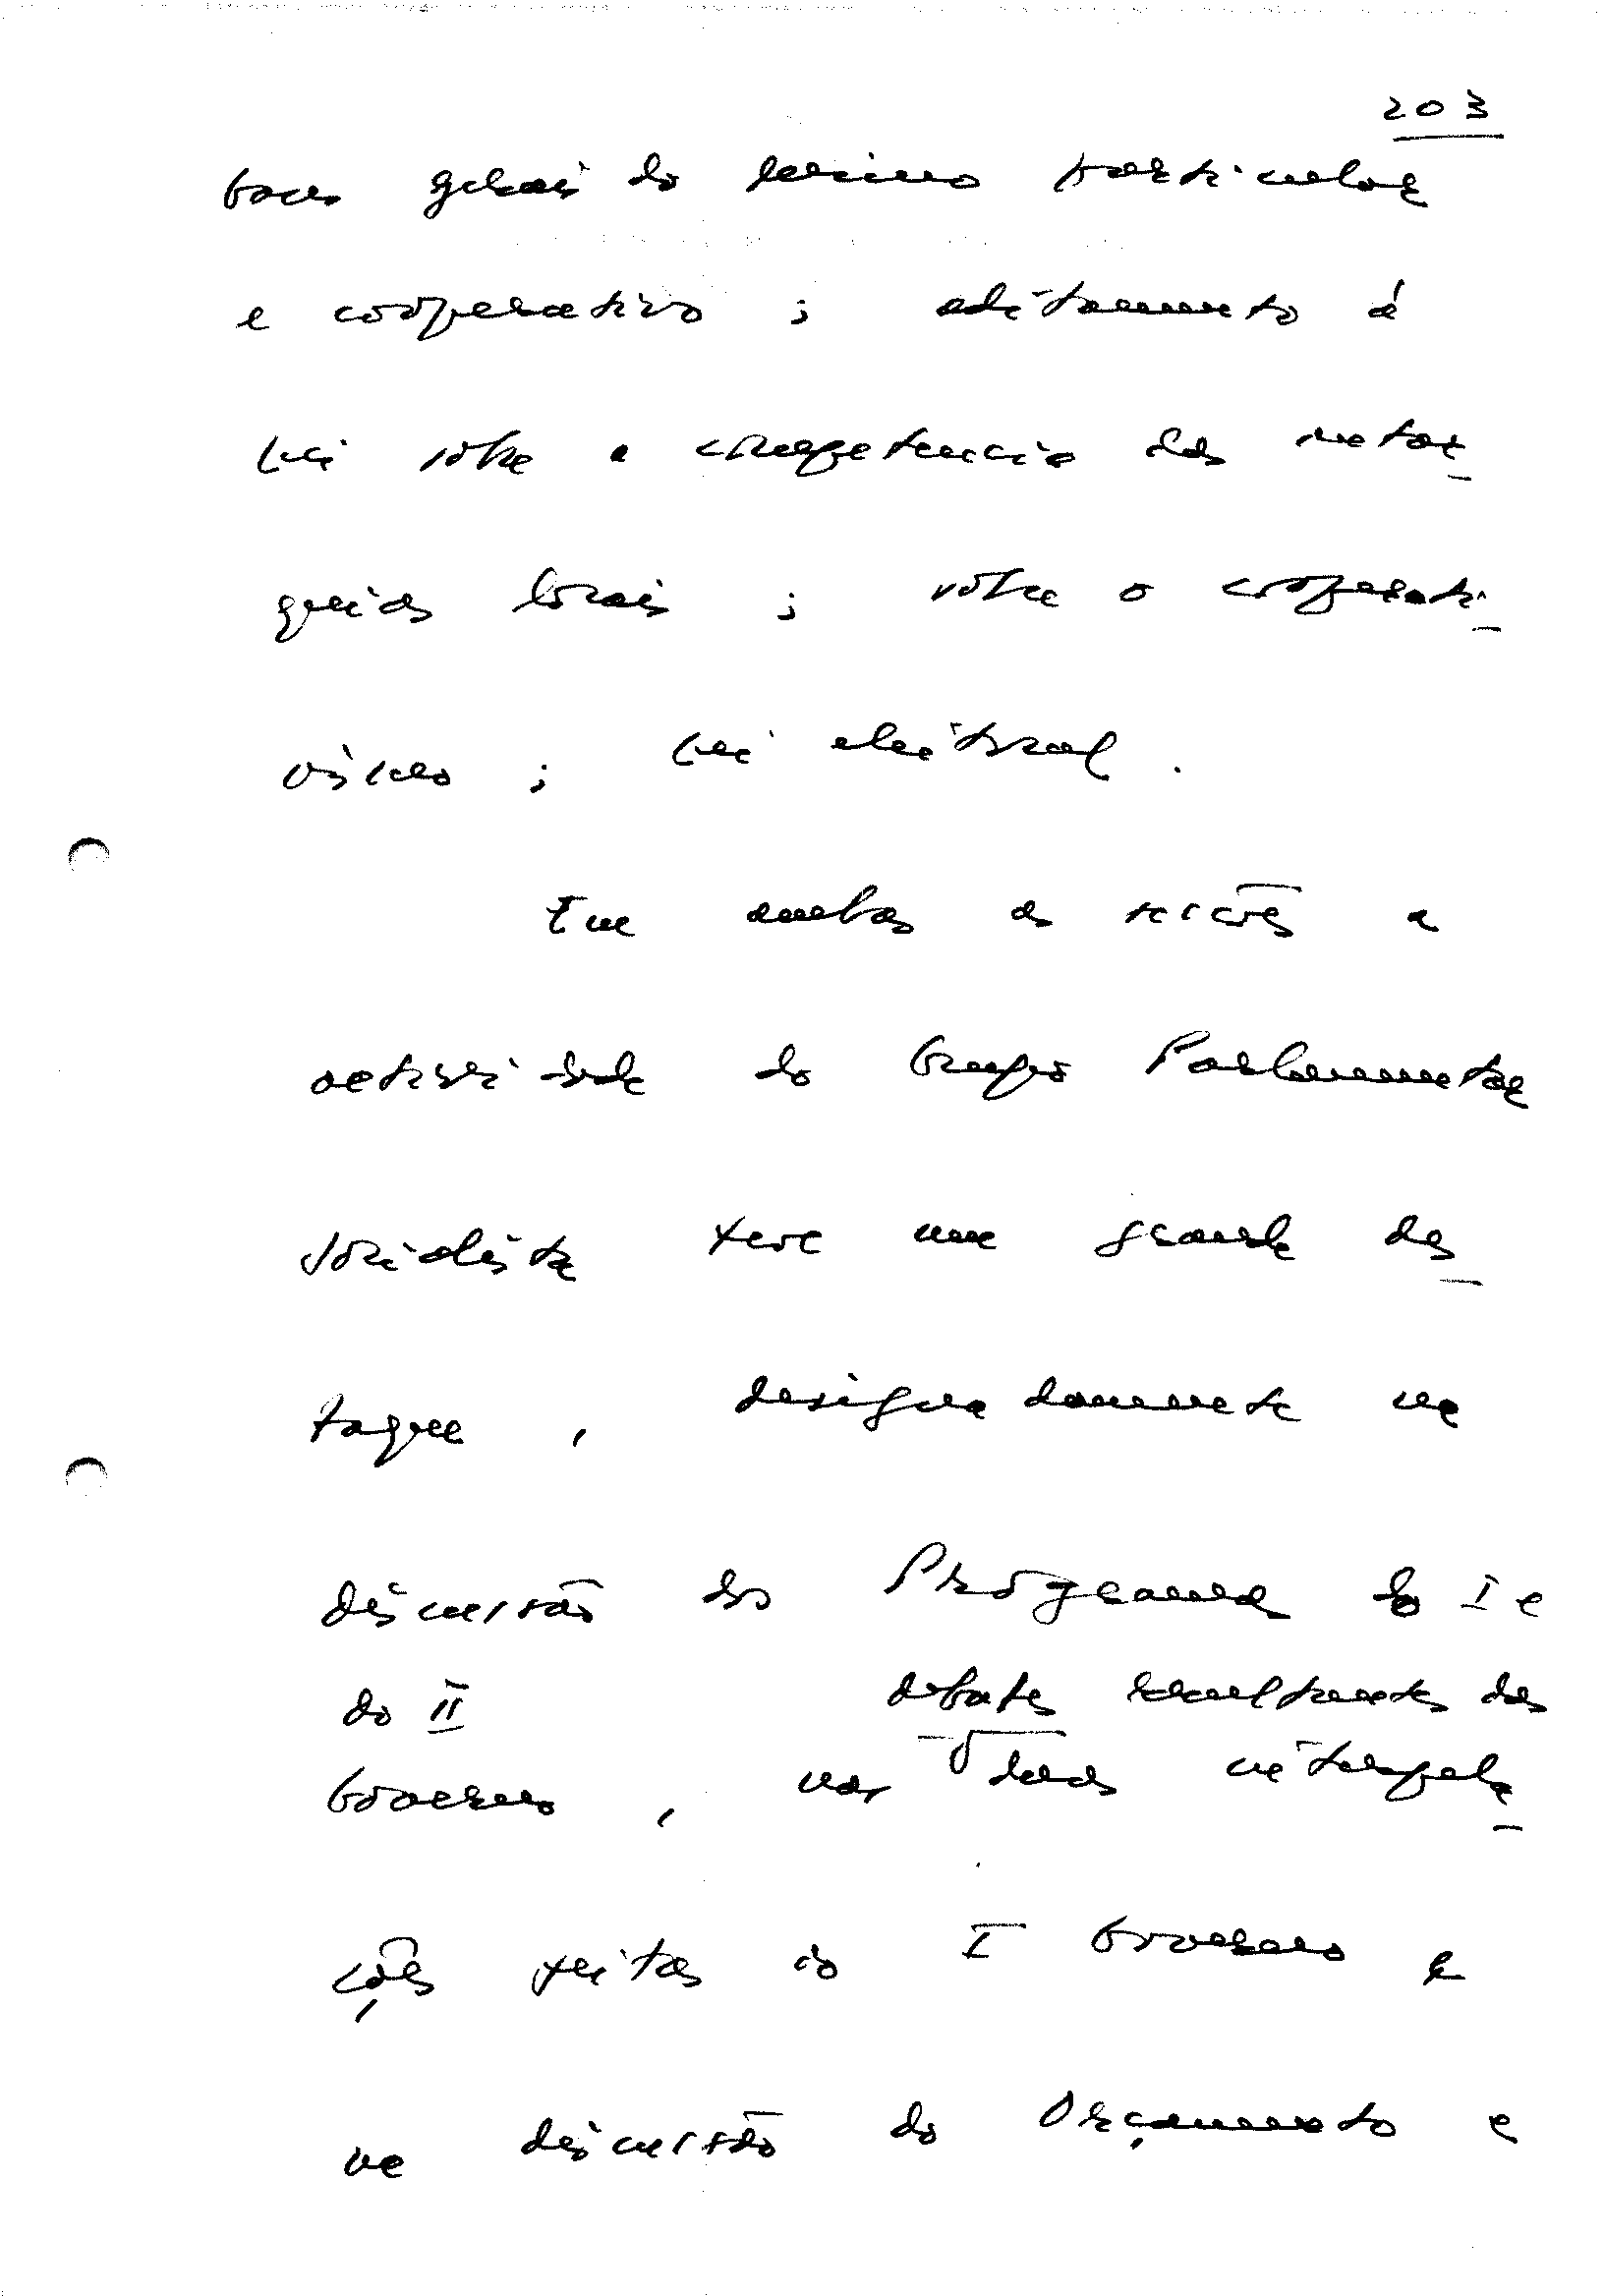 203
bases gerais do ensino particular
e cooperativo ; aditamento á
lei sôbre a competencia das autar_
quias locais ; sôbre o cooperati_
vismo ; lei eleitoral .
Em ambas as secções a
actividade do Grupo Parlamentar
Socialista teve um grande des_
taque , designadamente na
discussão do Programa do I e
do II debates resultantes das
Governo , nas interpela_
ções feitas ao I Governo e
na discussão do Orçamento e